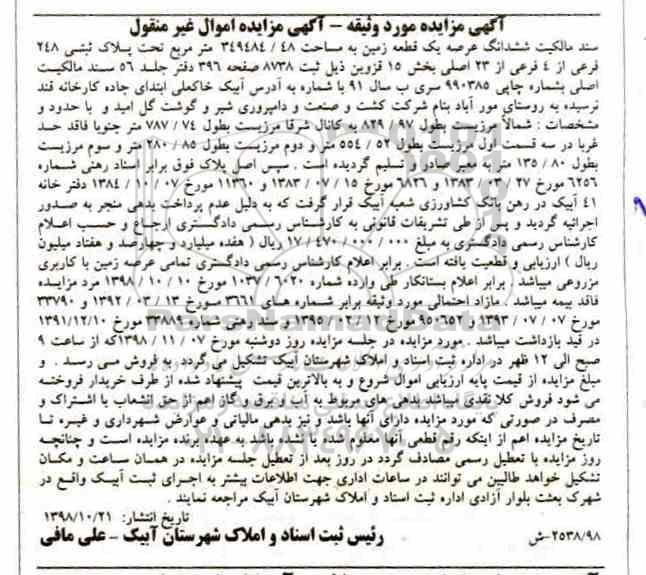 آگهی مزایده مورد وثیقه – آگهی مزایده اموال غیر منقول
سند مالکیت ششدانگ عرصه یک قطعه زمین به مساحت ۴۸ / ۳۴۹۴۸۴ متر مربع تحت پلاک ثبتی ۲۴۸
فرعی از ۴ فرعی از ۲۳ اصلی بخش ۱۵ قزوین ذیل ثبت ۸۷۳۸ صفحه ۳۹۶ دفتر جلد ۵۶ سند مالکیت
اصلی بشماره چاپی ۹۹۰۳۸۵ سری ب سال ۹۱ با شماره به آدرس آبیک خاکعلی ابتدای جاده کارخانه قند
نرسیده به روستای مور آباد بنام شرکت کشت و صنعت و دامپروری شیر و گوشت گل امید و با حدود و
مشخصات : شمالاً مرزیست بطول ۹۷ / ۸۲۹ به کانال شرقا مرزیست بطول ۷۴ / ۷۸۷ متر جنوبا فاقد حد
غربا در سه قسمت اول مرزیست بطول ۵۲ / ۵۵۴ متر و دوم مرزیست بطول ۸۵ / ۲۸۰ متر و سوم مرزیست
بطول ۸۰ / ۱۳۵ متر به معبر صادر و تسلیم گردیده است . سپس اصل پلاک فوق برابر اسناد رهنی شماره
۶۲۵۶ مورخ ۲۷ / ۰۳ / ۱۳۸۳ و ۶۸۲۶ مورخ ۱۵ / ۰۷ / ۱۳۸۳ و ۱۱۳۶۰ مورخ ۰۷ / ۱۰ / ۱۳۸۴ دفتر خانه
۴۱ آبیک در رهن بانک کشاورزی شعبه آبیک قرار گرفت که به دلیل عدم پرداخت بدهی منجر به صدور
اجرائیه گردید و پس از طی تشریفات قانونی به کارشناس رسمی دادگستری ارجاع و حسب اعلام
کارشناس رسمی دادگستری به مبلغ ۰۰۰ / ۰۰۰ / ۴۷۰ / ۱۷ ریال ( هفده میلیارد و چهارصد و هفتاد میلیون
ریال ) ارزیابی و قطعیت یافته است . برابر اعلام کارشناس رسمی دادگستری تمامی عرصه زمین با کاربری
مزروعی میباشد . برابر اعلام بستانکار طی وارده شماره ۶۰۲۰ / ۱۰۳۷ مورخ ۱۰ / ۱۰ / ۱۳۹۸ مرد مزایده
فاقد بیمه میباشد . مازاد احتمالی مورد وثیقه برابر شماره های ۳۶۶۱ مورخ ۱۳ / ۰۳ / ۱۳۹۲ و ۳۳۷۹۰
مورخ ۰۷ / ۰۷ / ۱۳۹۳ و ۹۵۰۶۵۲ مورخ ۱۲ / ۰۲ / ۱۳۹۵ و سند رهنی شماره ۲۳۸۸۹ مورخ ۱۳۹۱/۱۲/۱۰
در قید بازداشت میباشد . مورد مزایده در جلسه مزایده روز دوشنبه مورخ ۰۷ / ۱۱ / ۱۳۹۸که از ساعت ۹
صبح الی ۱۲ ظهر در اداره ثبت اسناد و املاک شهرستان آبیک تشکیل می گردد به فروش می رسد . و
مبلغ مزایده از قیمت پایه ارزیابی اموال شروع و به بالاترین قیمت پیشنهاد شده از طرف خریدار فروخته
می شود فروش کلا نقدی میباشد بدهی های مربوط به آب و برق و گاز اعم از حق انشعاب یا اشتراک و
مصرف در صورتی که مورد مزایده دارای آنها باشد و نیز بدهی مالیاتی و عوارض شهرداری و غیره تا
تاریخ مزایده اعم از اینکه رقم قطعی آنها معلوم شده یا نشده باشد به عهده برنده مزایده است و چنانچه
روز مزایده با تعطیل رسمی مصادف گردد در روز بعد از تعطیل جلسه مزایده در همان ساعت و مکان
تشکیل خواهد طالبین می توانند در ساعات اداری جهت اطلاعات بیشتر به اجرای ثبت آبیک واقع در
شهرک بعثت بلوار آزادی اداره ثبت اسناد و املاک شهرستان آبیک مراجعه نمایند .
تاریخ انتشار: ۱۳۹۸/۱۰/۲۱
۲۵۳۸/۹۸-ش رئیس ثبت اسناد و املاک شهرستان آبیک – علی مافی